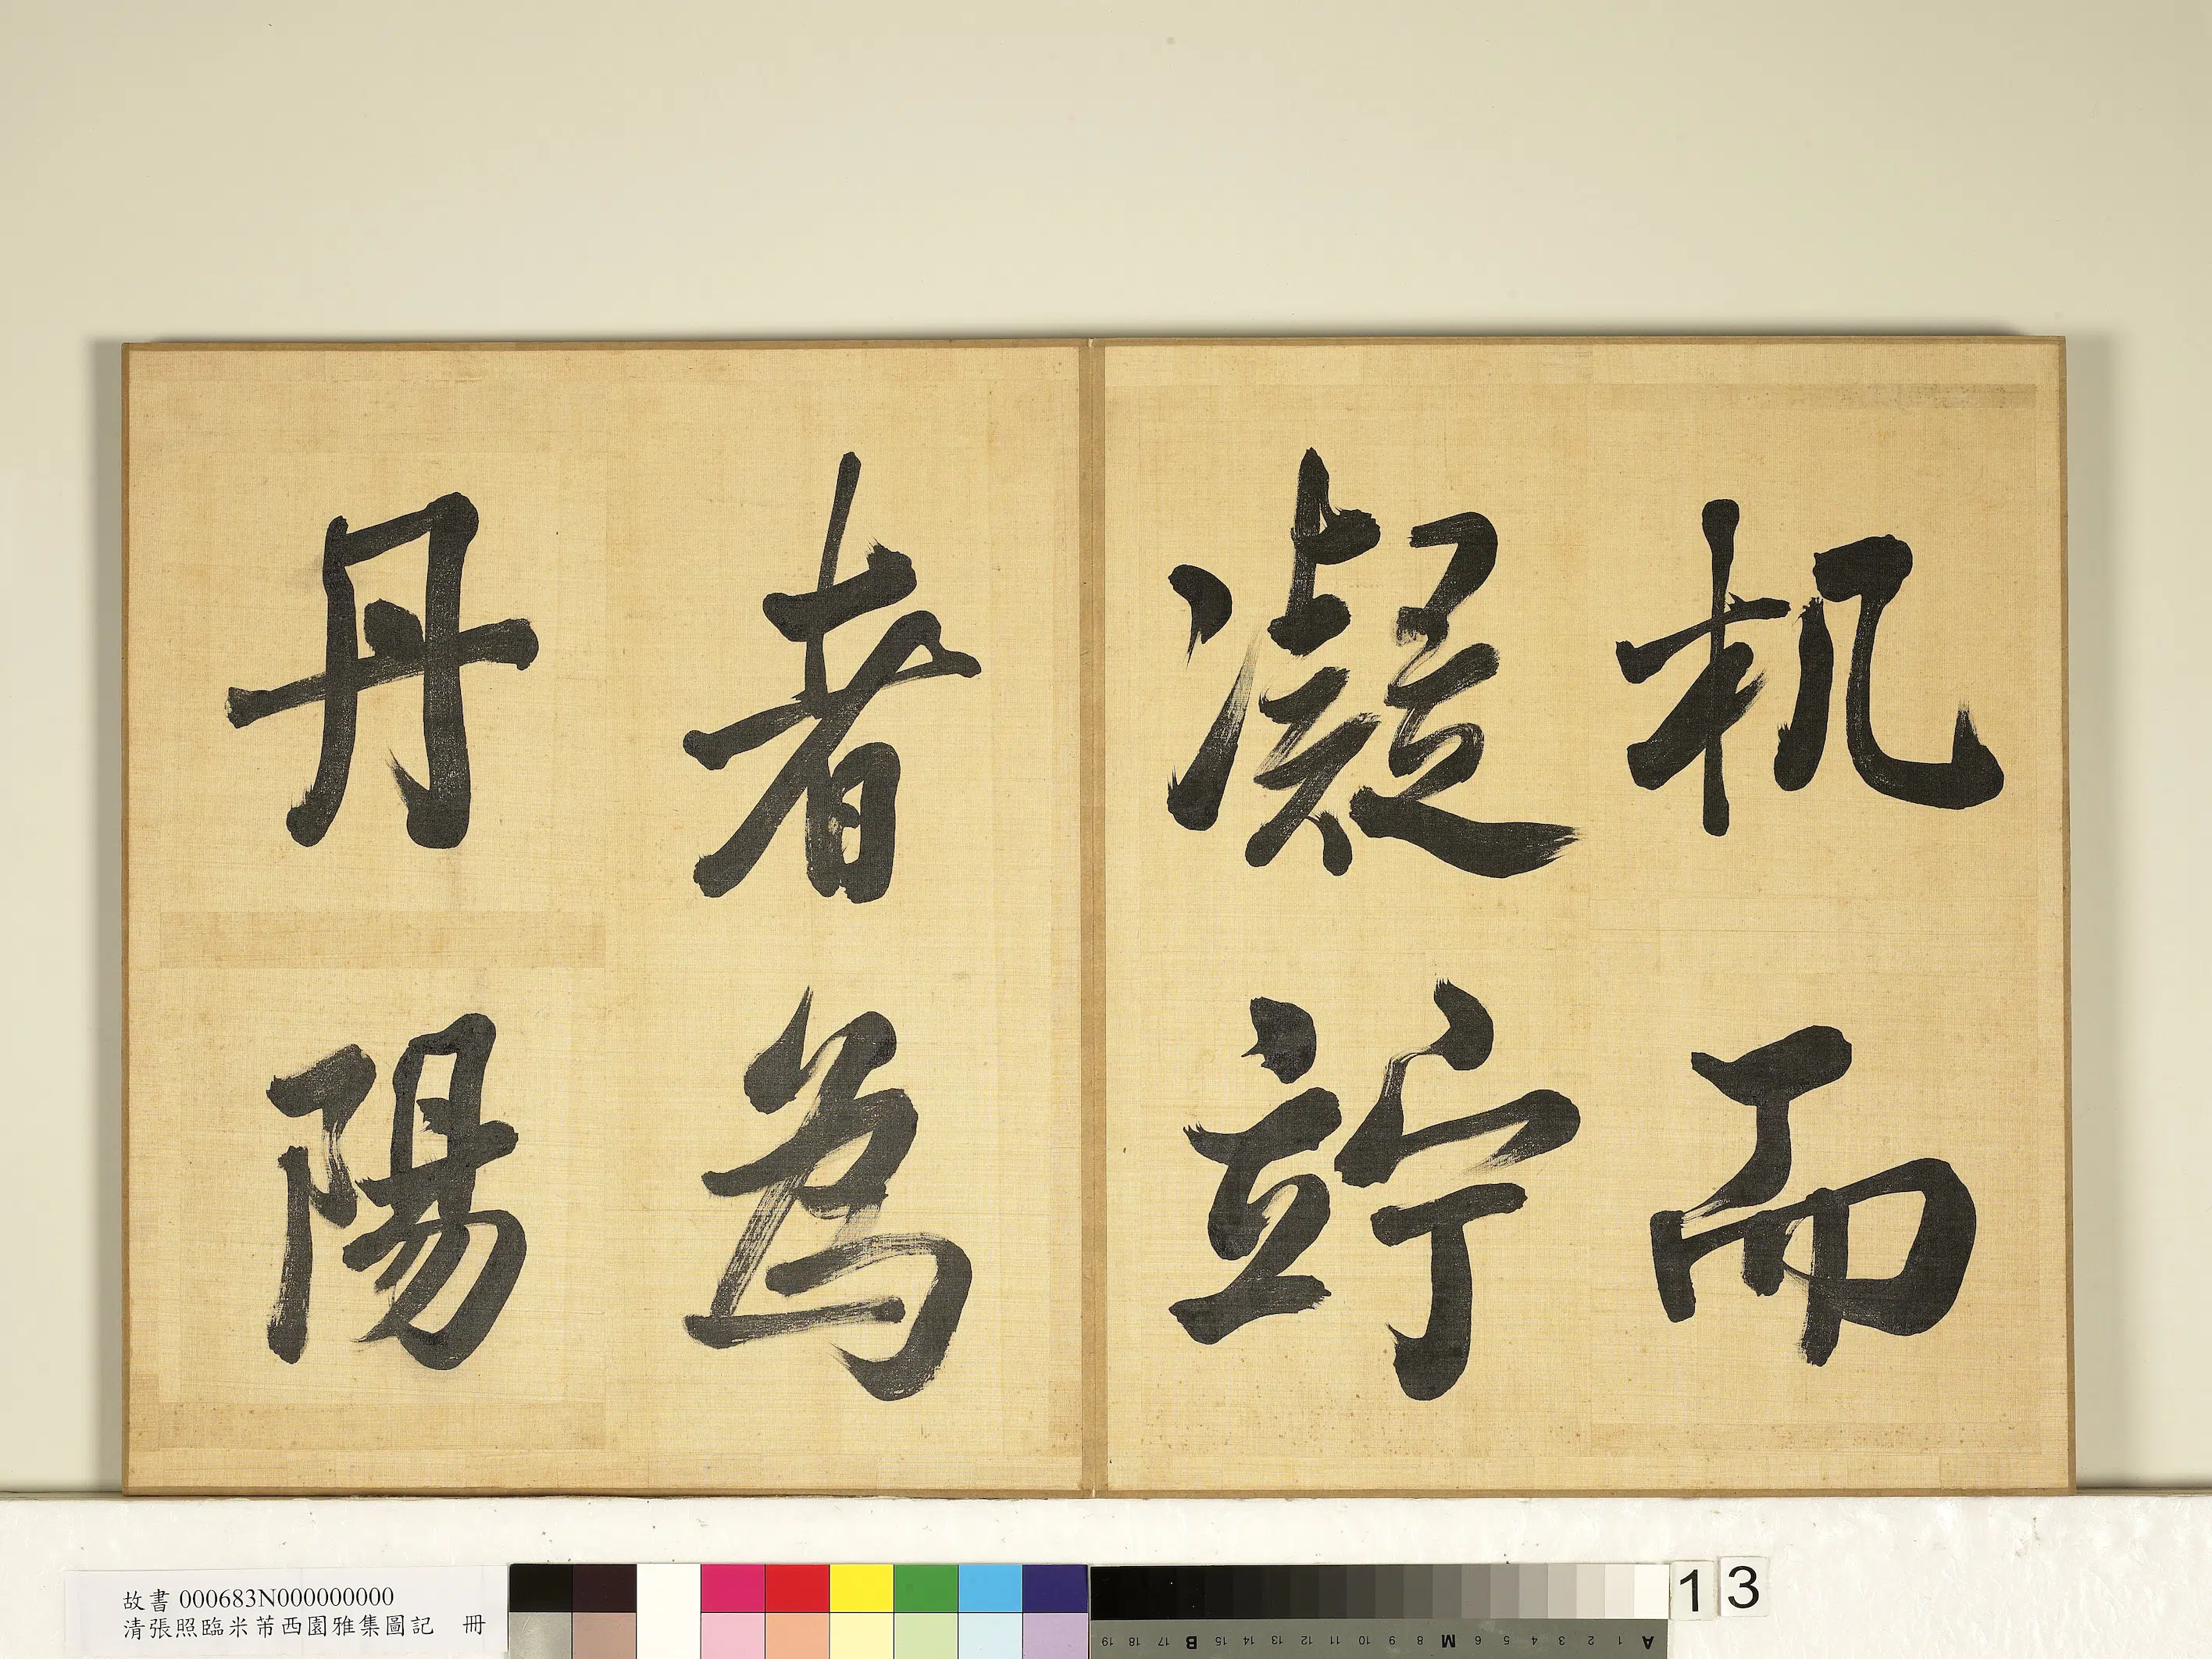 机而
凝竚
者為
丹陽
故書 000683N000000000
清張照臨米芾西園雅集圖記 冊
13
A 1 2 3 4 5 6 7 M 8 9 10 11 12 13 14 15 B 17 18 19